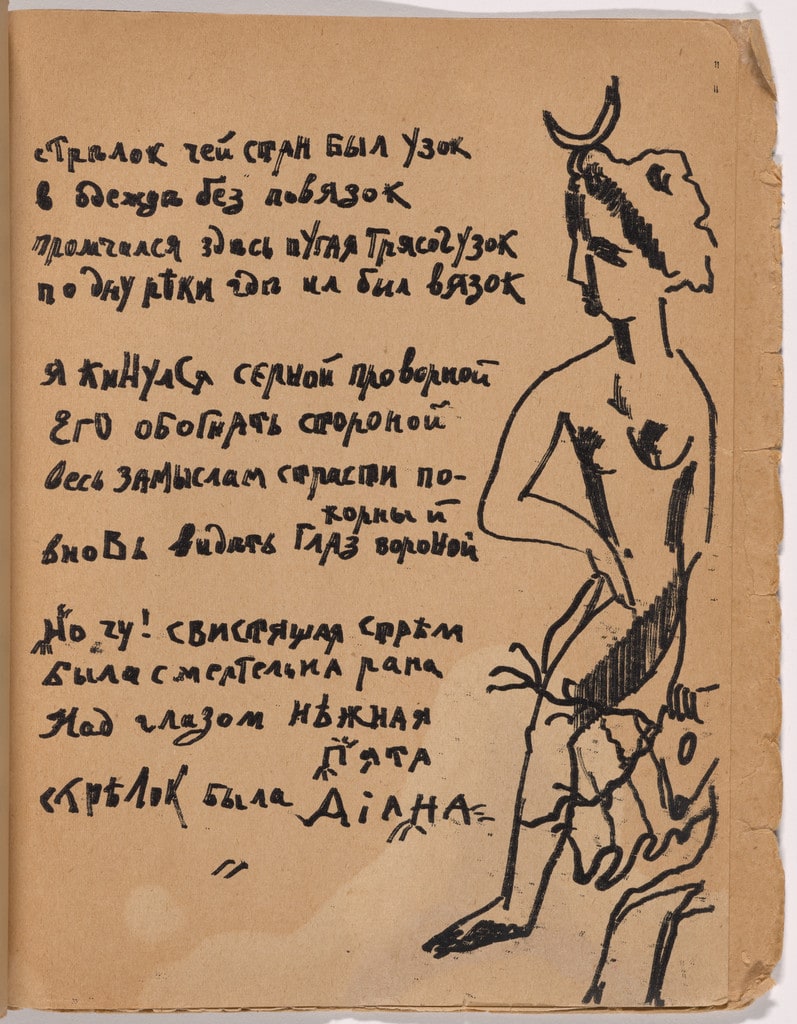 стрѣлок чей стан был узок
в одеждѣ без повязок
промчался здѣсь пугая трясогузок
по дну рѣки гдѣ ил был вязок
я кинулся серной проворной
ЕГО обогнать стороной
весь замыслам страсти по-
корный
вновь видѣть глаз вороной
Но чу! свистящая стрѣла
была смертельна рана
Над глазом нѣжная
пята
стрѣлок была Діана